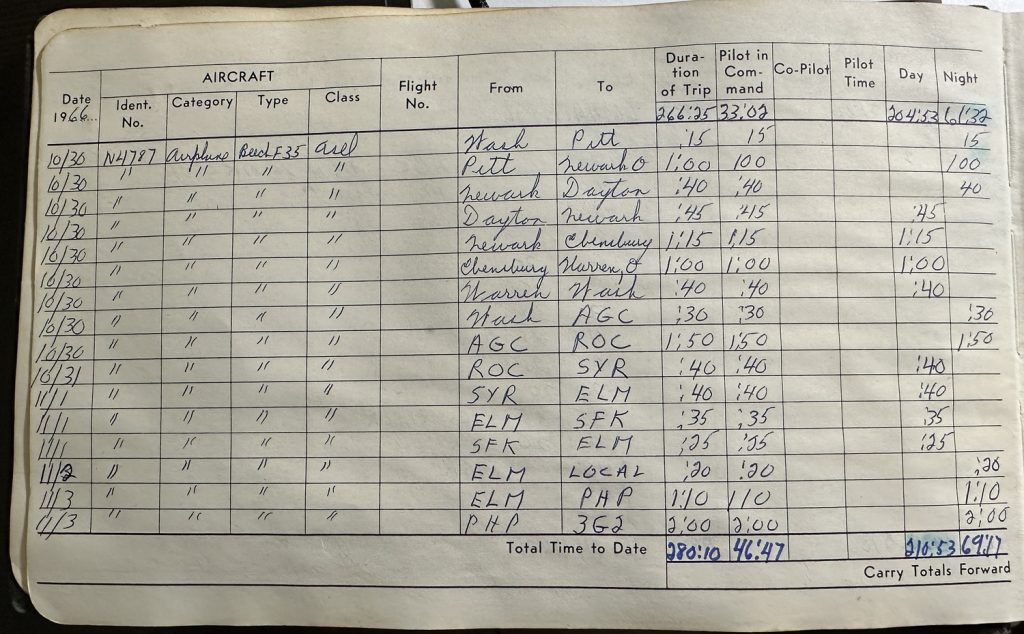 Date 1966... AIRCRAFT Flight No. From To Duration of Trip Pilot in Command Co-Pilot Pilot Time Day Night
Ident. No. Category Type Class
266:25 33:02 204:53 61:32
10/30 N4787 Airplane Beech F35 asel Wash Pitt :15 15 15
10/30 " " " " Pitt Newark O 1:00 100 100
10/30 " " " " Newark Dayton :40 :40 40
10/30 " " " " Dayton Newark :45 :45 :45
10/30 " " " " Newark Ebensburg 1:15 1:15 1:15
10/30 " " " " Ebensburg Warren, O 1:00 1:00 1:00
10/30 " " " " Warren Wash :40 :40 :40
10/30 " " " " Wash AGC :30 :30 :30
10/30 " " " " AGC ROC 1:50 1:50 1:50
10/31 " " " " ROC SYR :40 :40 :40
11/1 " " " " SYR ELM :40 :40 :40
11/1 " " " " ELM SFK :35 :35 :35
11/1 " " " " SFK ELM :25 :25 :25
11/2 " " " " ELM LOCAL :20 :20 :20
11/3 " " " " ELM PHP 1:10 110 1:10
11/3 " " " " PHP 3G2 2:00 2:00 2:00
Total Time to Date 280:10 46:47 210:53 69:17
Carry Totals Forward